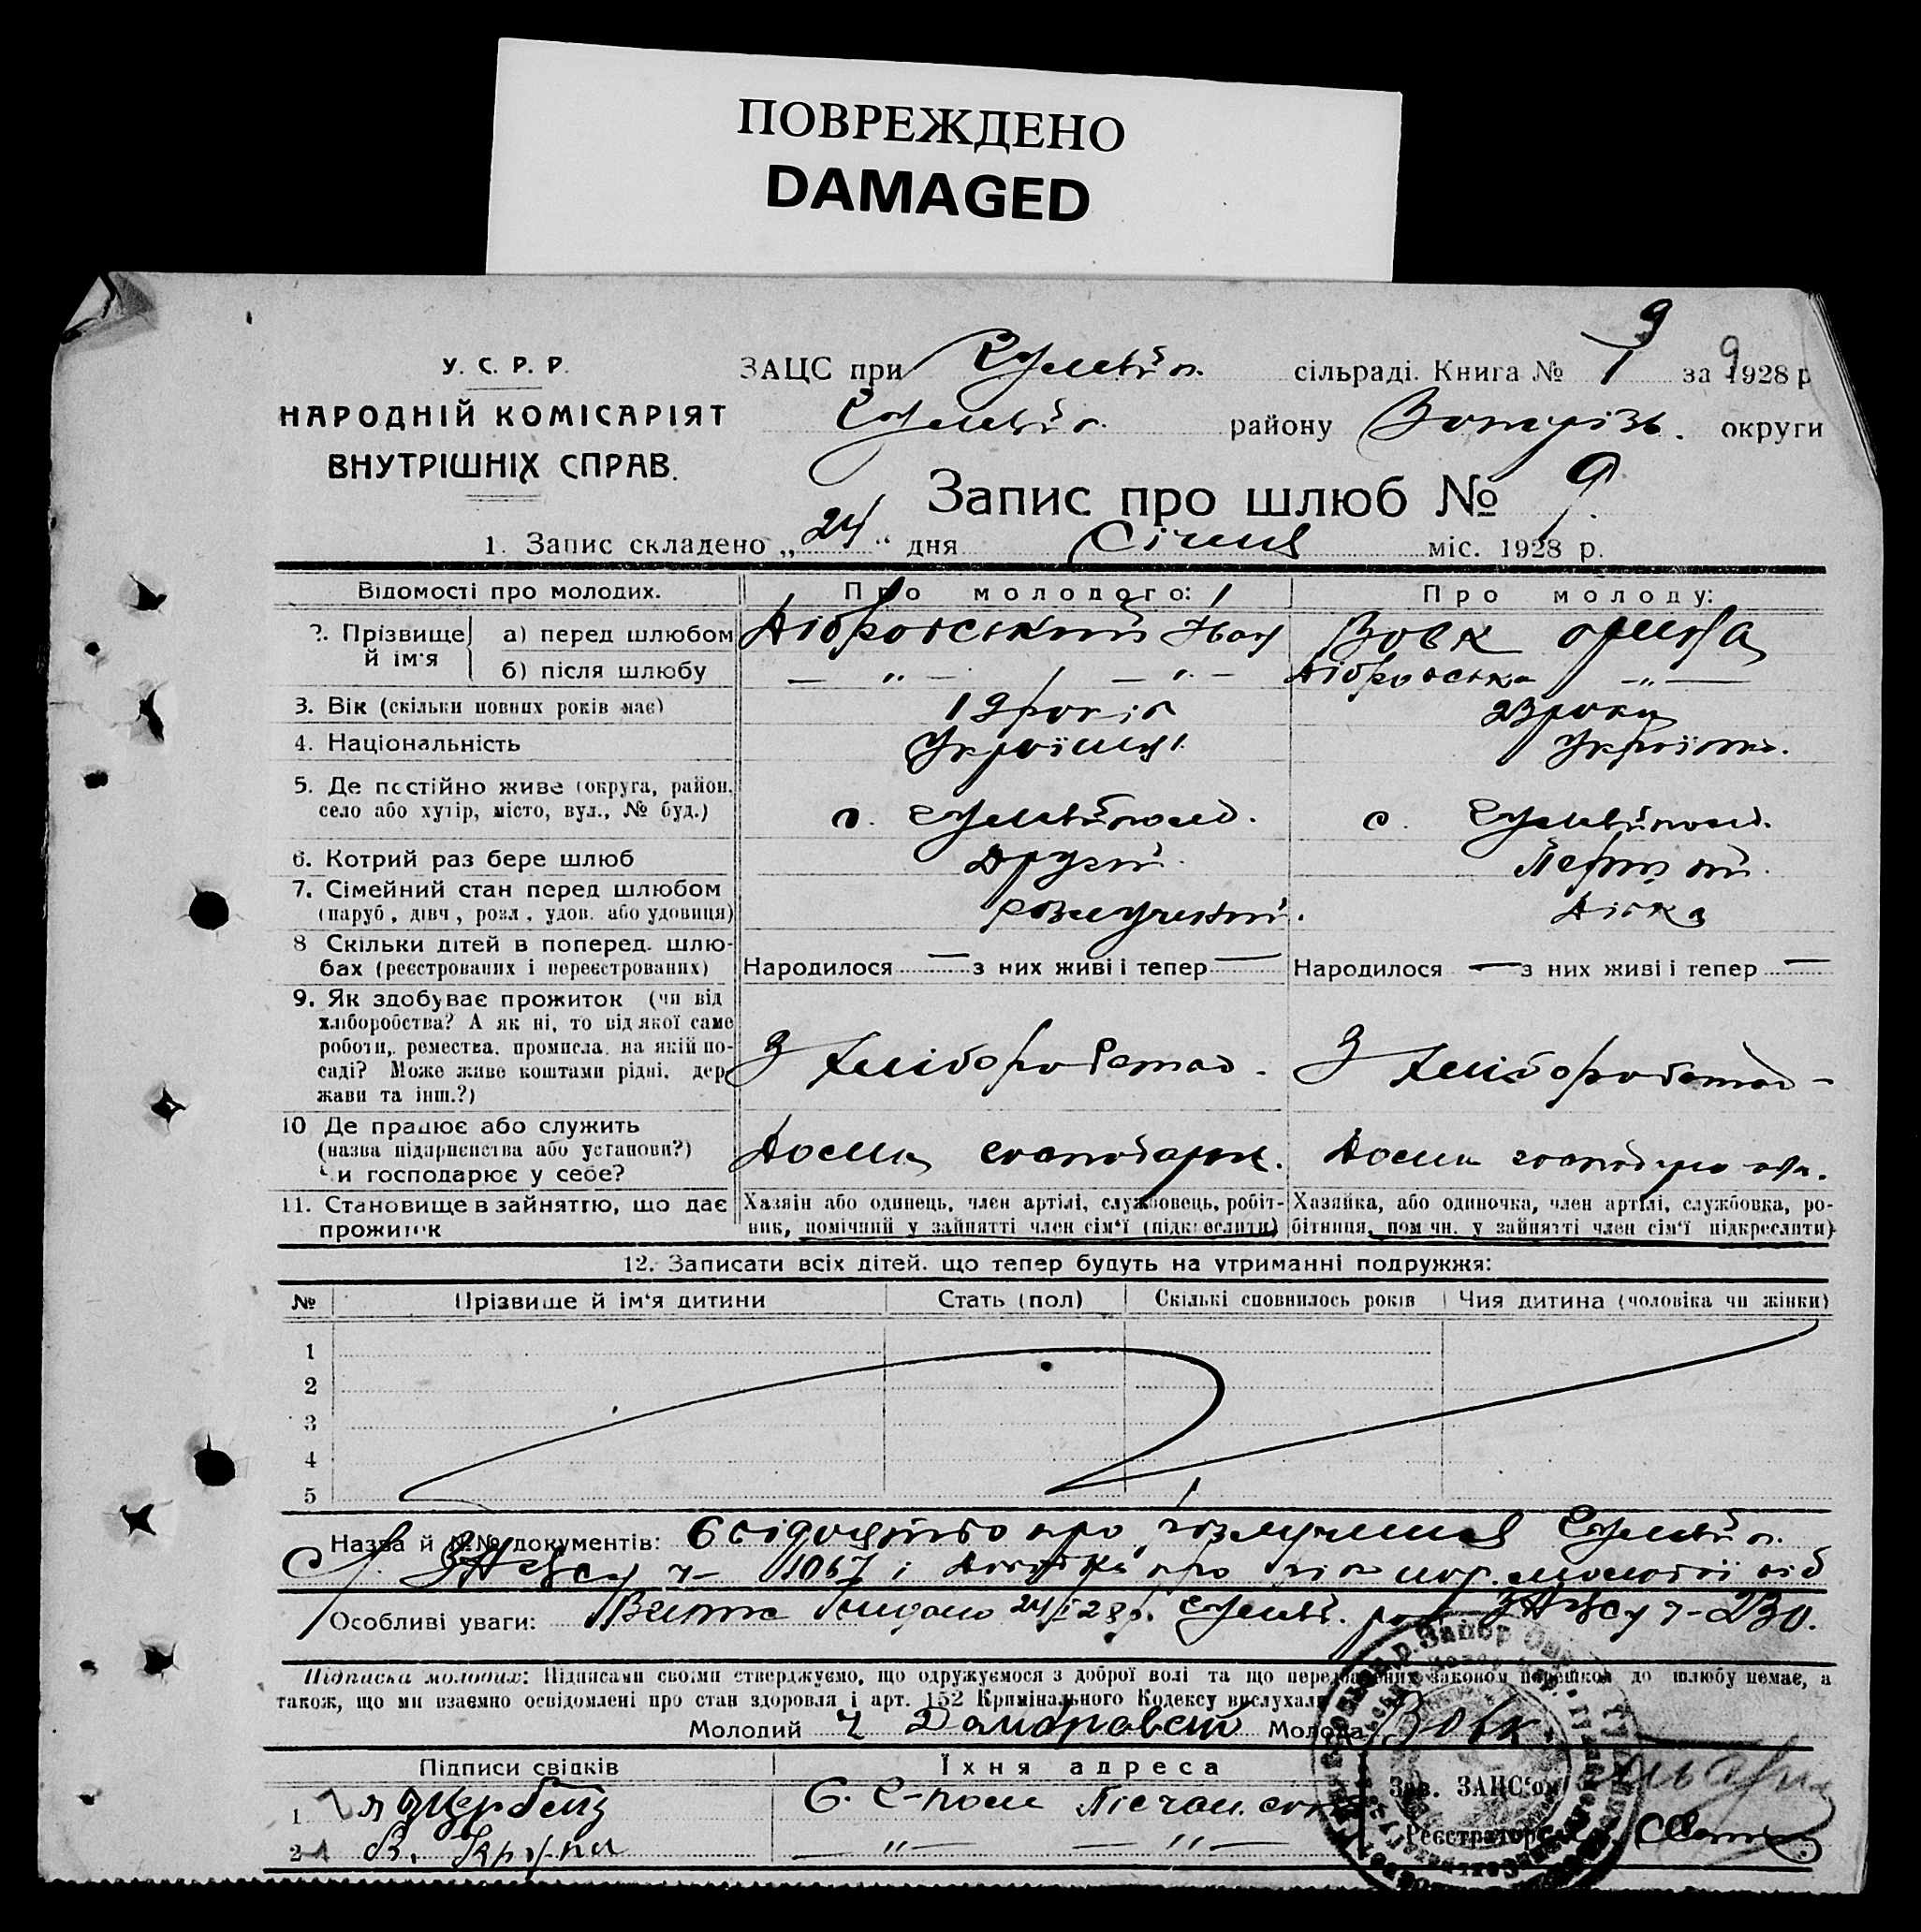 ПОВРЕЖДЕНО
DAMAGED
У. С. Р. Р.
НАРОДНІЙ КОМІСАРІЯТ
ВНУТРІШНІХ СПРАВ.
ЗАЦС при Гуляйп. сільраді. Книга № 1 за 1928 р
9 9
Гуляйп. району Запоріз. округи
Запис про шлюб № 9.
1. Запис складено „24" дня Січня міс. 1928 р.
Відомості про молодих. Про молодого: Про молоду:
2. Прізвище й ім'я а) перед шлюбом Дібровський Іван Вовк
б) після шлюбу — „ — — „ — Дібровська — „ —
3. Вік (скільки повних років має) 19 років 23 роки
4. Національність Українець Українка.
5. Де постійно живе (округа, район,
село або хутір, місто, вул., № буд.) с. Гуляйполе. с. Гуляйполе.
6. Котрий раз бере шлюб Другий. Перший.
7. Сімейний стан перед шлюбом
(паруб, дівч, розл, удов. або удовиця) розлучений. Дівка
8 Скільки дітей в поперед. шлю-
бах (реєстрованих і нереєстрованих) Народилося — з них живі і тепер — Народилося — з них живі і тепер —
9. Як здобуває прожиток (чи від
хліборобства? А як ні, то від якої саме
роботи, ремества, промисла, на якій по-
саді? Може живе коштами рідні, дер
жави та інш.?) З хліборобства. З хліборобства -
10 Де працює або служить
(назва підприємства або установи?)
чи господарює у себе? Дома господарює. Дома
11. Становище в зайняттю, що дає
прожиток
Хазяін або одинець, член артілі, службовець, робіт-
ник, помічний у зайнятті член сім'ї (підкреслити)
Хазяйка, або одиночка, член артілі, службовка, ро-
бітниця, пом чн. у зайнятті член сім'ї підкреслити)
12. Записати всіх дітей. що тепер будуть на утриманні подружжя:
№ Прізвище й ім'я дитини Стать (пол) Скількі сповнилось років Чия дитина (чоловіка чи жінки)
1
2
3
4
5
Назва й №№ документів: Свідоцтво про розлучення Гуляйп.
ЗАЦСу ч- 1067 і довідка про від
Особливі уваги: видано 24/I 28р. Гуляйп. ЗАЦСу ч- 230.
Підписка молодих: Підписами своїми стверджуємо, що одружуємося з доброї волі та що передбачених законом перешкод до шлюбу немає, а
також, що ми взаємно освідомлені про стан здоровля і арт. 152 Кримінального Кодексу вислухали
Молодий Молода Вовк.
Підписи свідків Їхня адреса
1
2 В.
— „ — — „ —
Зав. ЗАЦС'ом
Реєстратор